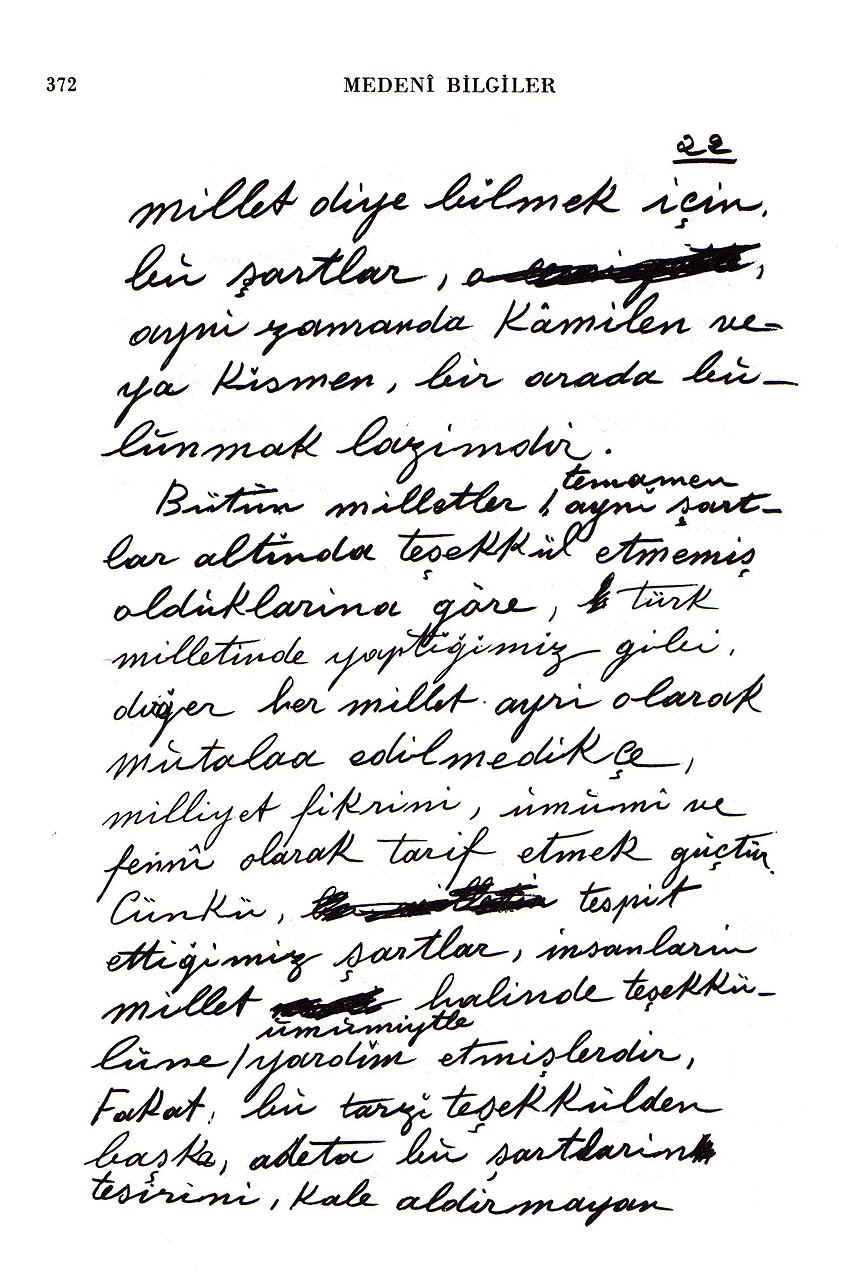 372 MEDENÎ BİLGİLER
22
millet diye bilmek için,
bu şartlar, o
ayni zamanda Kâmilen ve-
ya Kismen, bir arada bu-
lunmak lazimdir.
temamen
Bütün milletler / ayni şart-
lar altinda teşekkül etmemiş
olduklarina göre, türk
milletinde yaptiğimiz gibi,
diğer her millet ayri olarak
mutalaa edilmedikçe,
milliyet fikrini, umumî ve
fennî olarak tarif etmek güçtür.
Cünkü, tespit
ettiğimiz şartlar, insanlarin
millet halinde teşekkü-
umumiytle
lüne / yardim etmişlerdir,
Fakat, bu tarzi teşekkülden
başka, adeta bu şartlarin
tesirini, Kale aldirmayan